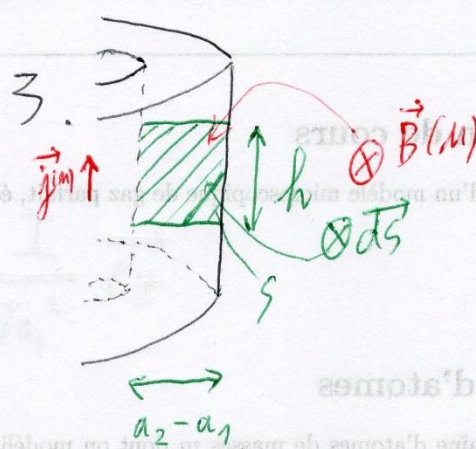 3.
j(M)
h
B(M)
dS
S
a₂-a₁